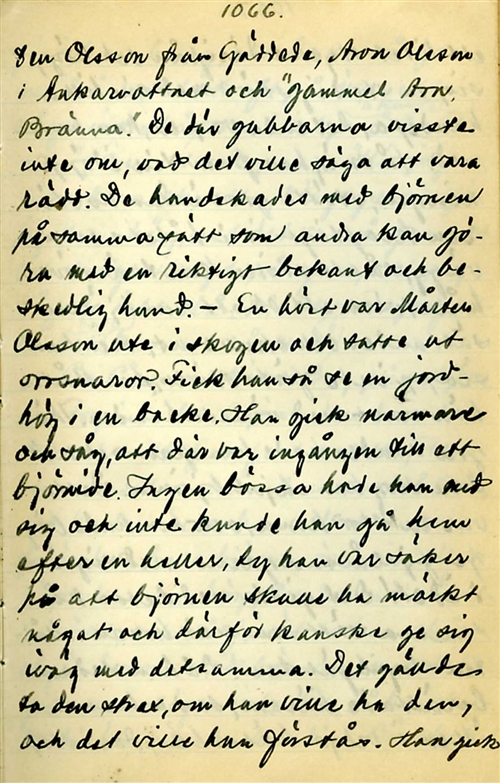 1066.
ten Olsson från Gäddede, Aron Olsson
i Ankarvattnet och "gammel Arn,
Bränna." De där gubbarna visste
inte om, vad det ville säga att vara
rädd. De handskades med björnen
på samma sätt som andra kan gö-
ra med en riktigt bekant och be-
skedlig hund. – En höst var Mårten
Olsson ute i skogen och satte ut
orrsnaror. Fick han så se en jord-
hög i en backe. Han gick närmare
och såg, att där var ingången till ett
björnide. Ingen bössa hade han med
sig och inte kunde han gå hem
efter en heller, ty han var säker
på att björnen skulle ha märkt
något och därför kanske ge sig
iväg med detsamma. Det gällde
ta den strax, om han ville ha den,
och det ville han förstås. Han gick